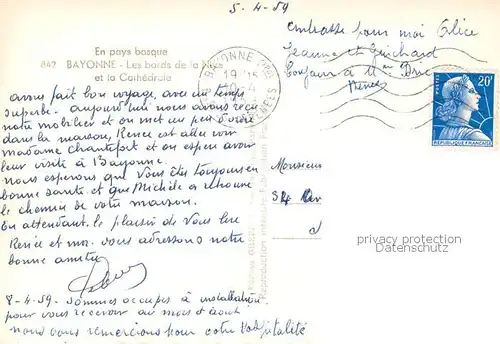 5-4-59
embrasse pour moi Alice
Jeanne et Guichard
Bonjour à Mr Duc
Renée
En pays basque
842 BAYONNE - Les bords de la Nive
et la Cathédrale
BAYONNE
19 H 15
POSTES 20F
REPUBLIQUE FRANÇAISE
avons fait bon voyage avec un temps
superbe. aujourd'hui nous avons reçu
notre mobilier et on met un peu d'ordre
dans la maison, Renée est allée voir
madame Chantefort et on espère avoir
leur visite à Bayonne.
nous espérons que Vous êtes toujours en
bonne santé et que Michèle a retrouvé
le chemin de votre maison.
En attendant le plaisir de Vous lire
Renée et moi vous adressons notre
bonne amitié
8-4-59 - Sommes occupés à installation
pour vous recevoir au mois d'août
nous vous remercions pour votre hospitalité
Monsieur
privacy protection
DATENSCHUTZ